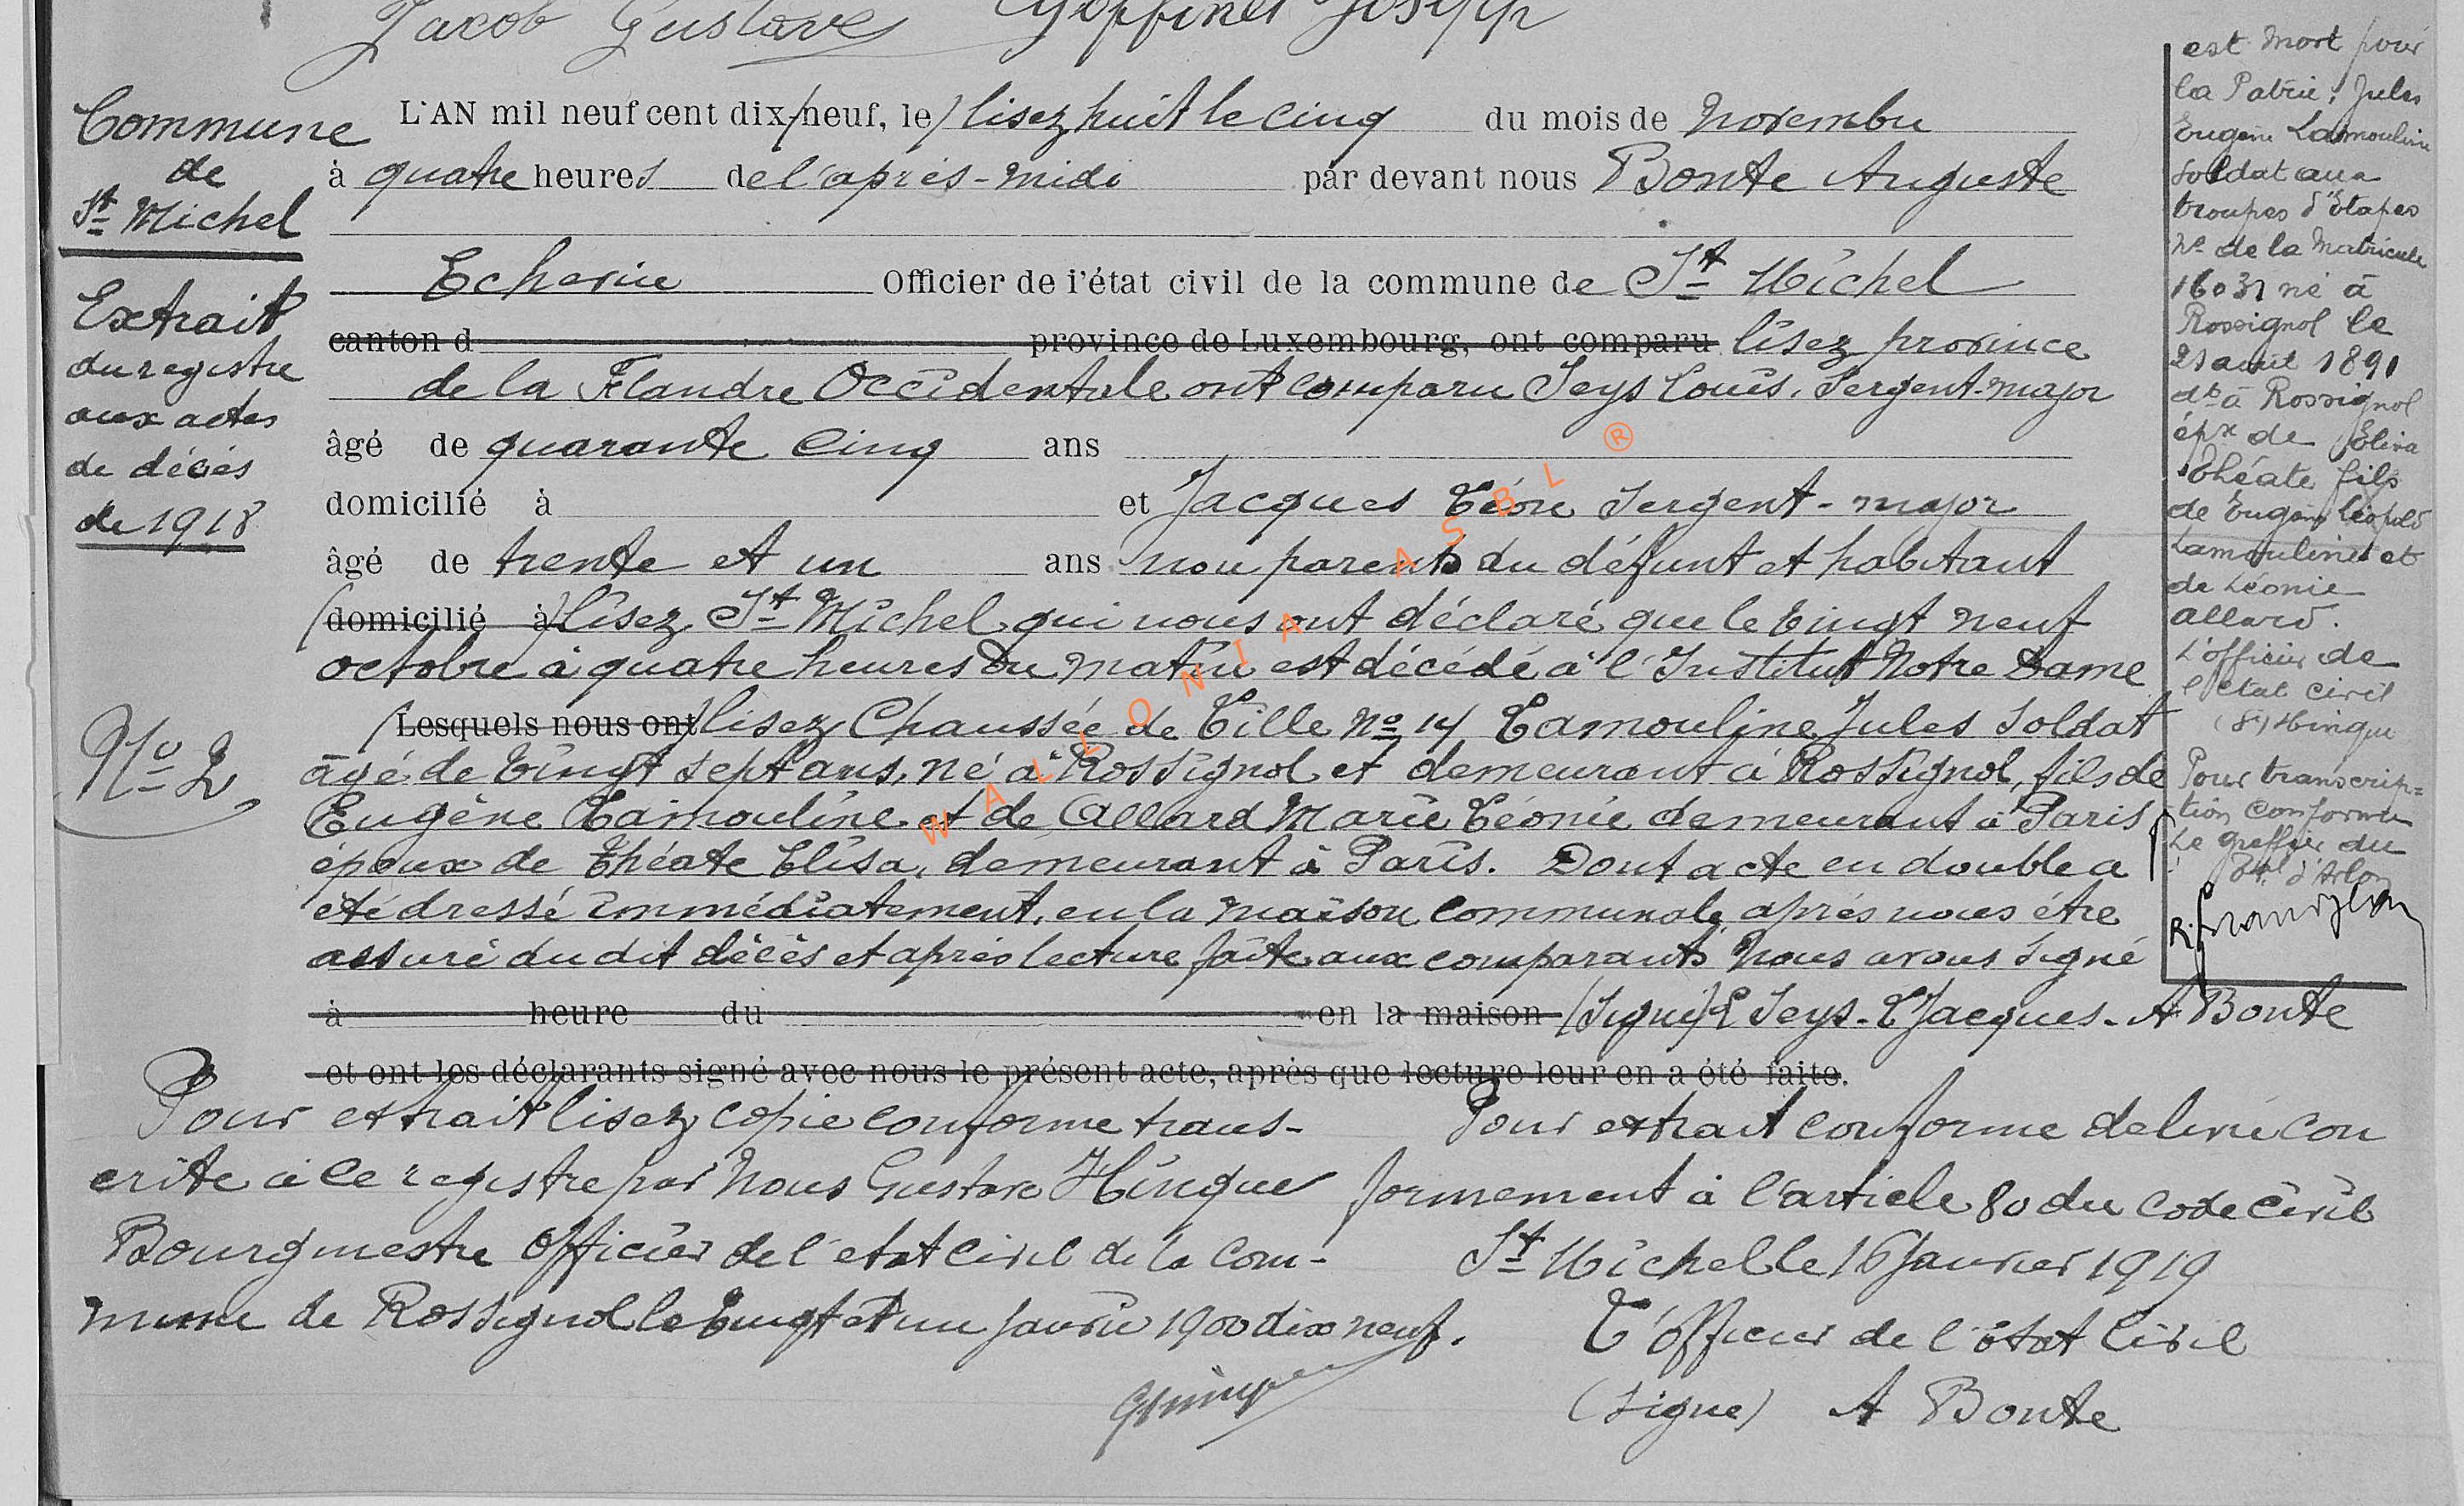 Jacob Gustave Goffinet Joseph
Commune
de
St Michel
Extrait
du registre
aux actes
de décès
de 1918
No 2
L'AN mil neuf cent dix-(neuf, le) lisez huit le cinq du mois de Novembre
à quatre heures de l'après-midi par devant nous Bonte Auguste
Echevin Officier de l'état civil de la commune de St Michel
canton d province de Luxembourg, ont comparu lisez province
de la Flandre Occidentale ont comparu Seys Louis, Sergent-major
âgé de quarante cinq ans
domicilié à et Jacques Léon Sergent-major
âgé de trente et un ans non parents du défunt et habitant
(domicilié à) lisez St Michel qui nous ont déclaré que le vingt neuf
octobre à quatre heures du matin est décédé à l'Institut Notre Dame
(Lesquels nous ont) lisez Chaussée de Lille No 14 Lamouline Jules Soldat
âgé de vingt sept ans, né à Rossignol et demeurant à Rossignol, fils de
Eugène Lamouline et de Allard Marie Léonie demeurant à Paris
époux de Théate Elisa, demeurant à Paris. Dont acte en double a
été dressé immédiatement, en la maison communale, après nous être
assuré du dit décès et après lecture faite aux comparants nous avons signé
à heure du en la maison (Signé) L Seys - L Jacques - A Bonte
et ont les déclarants signé avec nous le présent acte, après que lecture leur en a été faite.
Pour extrait lisez copie conforme trans-
crite à ce registre par Nous Gustave Hinque
Bourgmestre Officier de l'etat Civil de la Com-
mune de Rossignol le vingt et un Janvier 1900 dix neuf.
GHinque
Pour extrait conforme delivré con
formement à l'article 80 du Code Civil
St Michel le 16 Janvier 1919
L'Officier de l'état Civil
(Signé) A Bonte
est mort pour
la Patrie: Jules
Eugène Lamouline
soldat aux
troupes d'Etapes
No de la Matricule
né à
Rossignol le
21 août 1891
dt à Rossignol
épx de Elisa
Théate fils
de Eugène Léopold
Lamouline et
de Léonie
Allard.
L'officier de
l'état civil
(s) Hinque
Pour transcrip-
tion conforme
Le greffier du
d'Arlon
WALLONIA ASBL ®